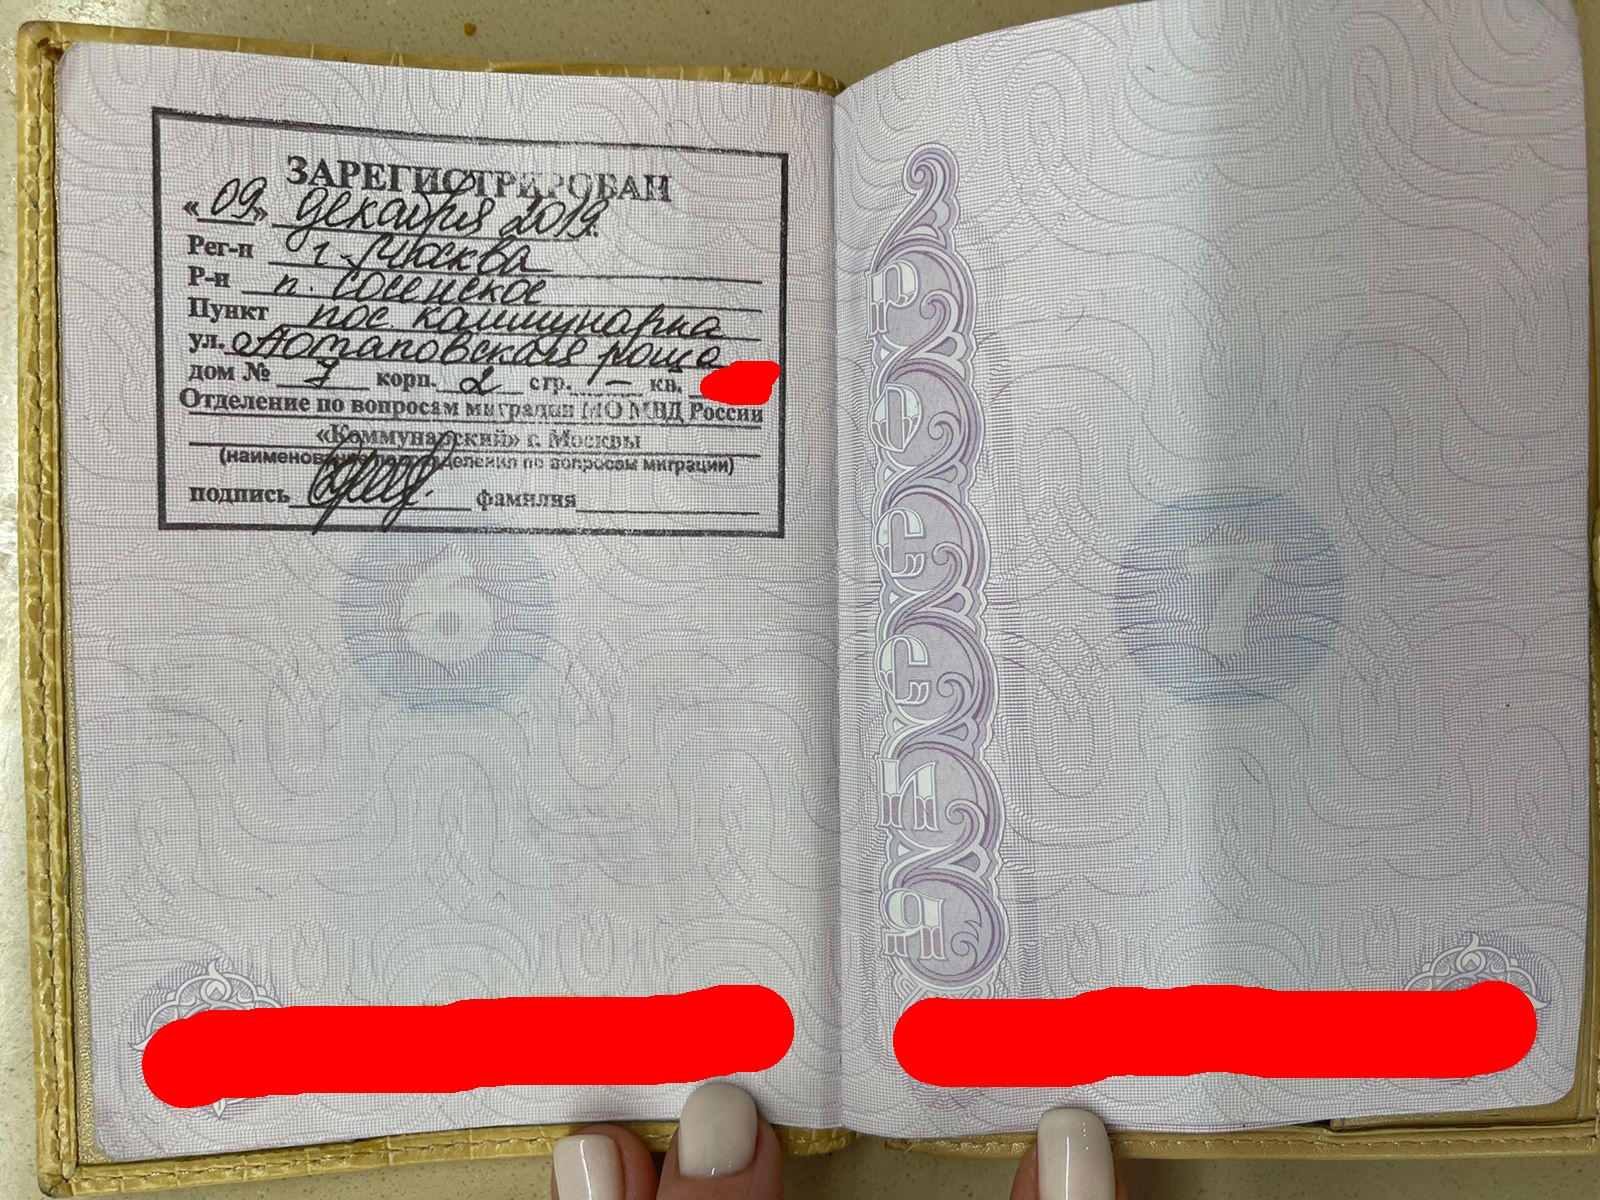 ЗАРЕГИСТРИРОВАН
«09» декабря 2019г.
Рег-н г. Москва
Р-н п. Сосенское
Пункт пос. Коммунарка
ул. Потаповская роща
дом № 7 корп. 2 стр. — кв.
Отделение по вопросам миграции МО МВД России
«Коммунарский» г. Москвы
(наименование подразделения по вопросам миграции)
подпись фамилия
6
РОССИЯ
7